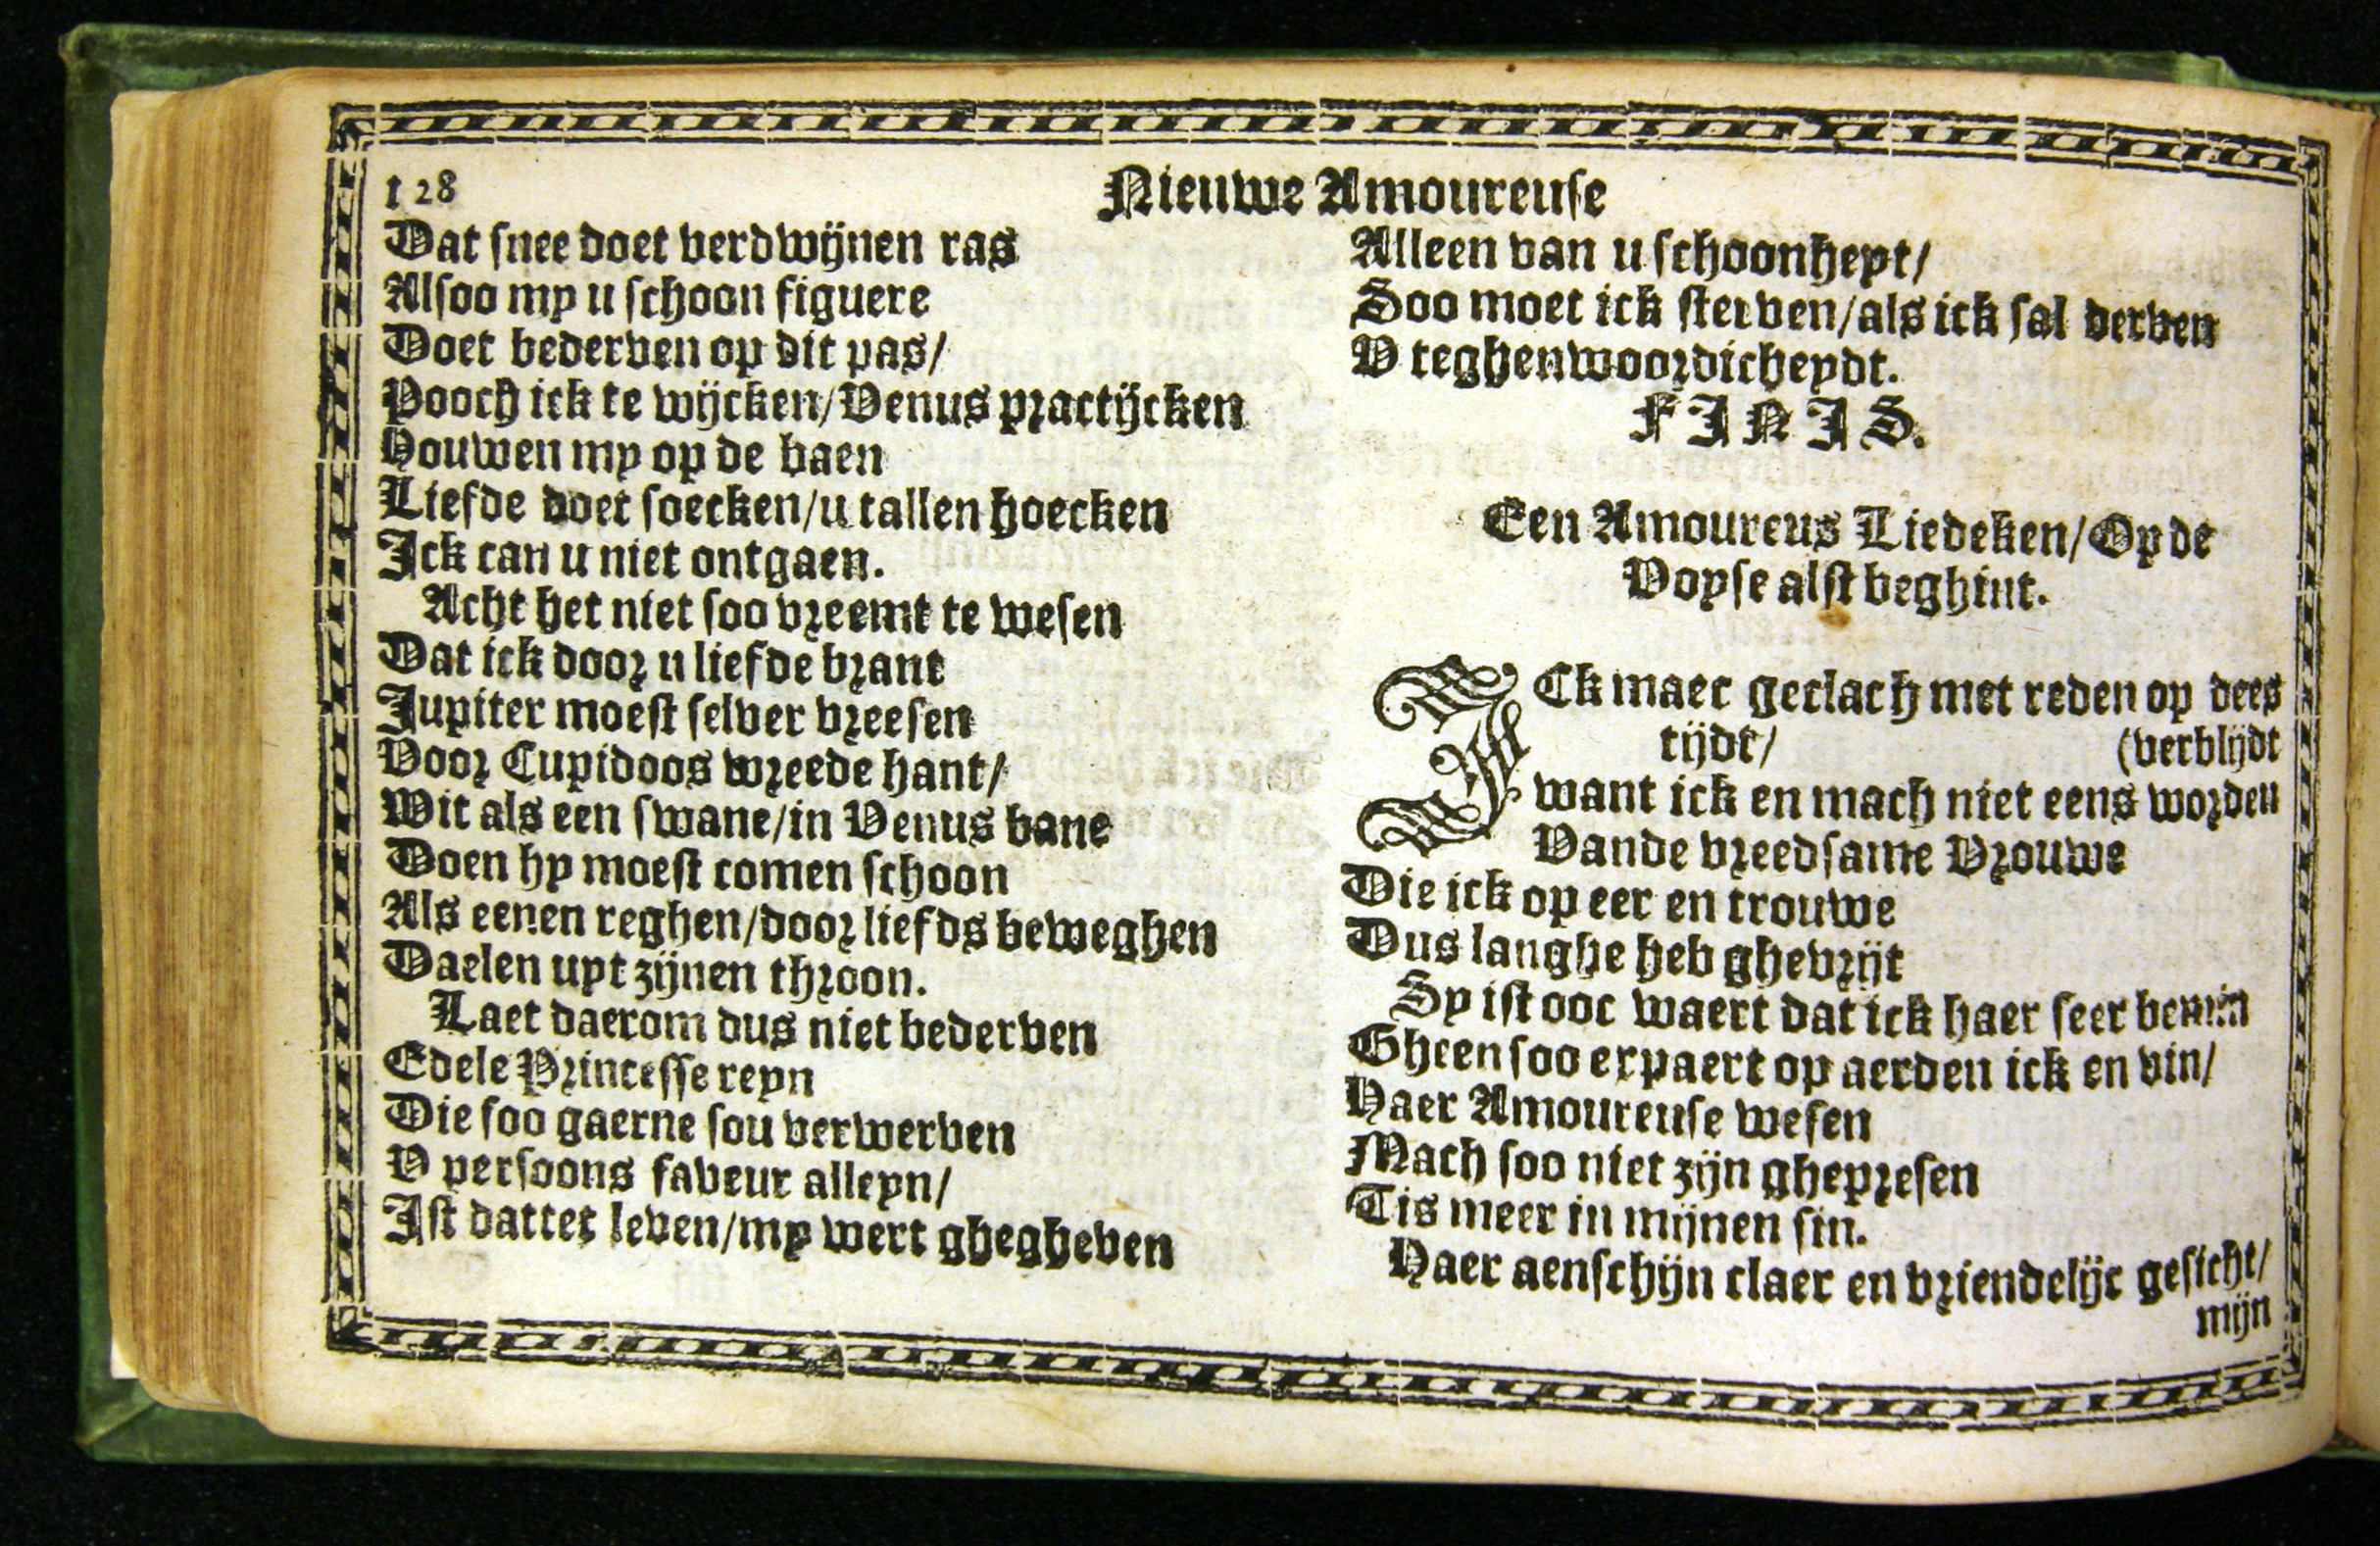 128
Nieuwe Amoureuse
Dat snee doet verdwijnen ras
Alsoo my u schoon figuere
Doet bederven op dit pas/
Pooch ick te wijcken/Venus practijcken
Houwen my op de baen
Liefde doet soecken/u tallen hoecken
Ick can u niet ontgaen.
Acht het niet soo vreemt te wesen
Dat ick door u liefde brant
Jupiter moest selver vreesen
Voor Cupidoos wreede hant/
Wit als een swane/in Venus bane
Doen hy moest comen schoon
Als eenen reghen/door liefds beweghen
Daelen uyt zijnen throon.
Laet daerom dus niet bederven
Edele Princesse reyn
Die soo gaerne sou verwerven
V persoons faveur alleyn/
Ist dattet leven/my wert ghegheven
Alleen van u schoonheyt/
Soo moet ick sterven/als ick sal derven
V teghenwoordicheydt.
FINIS.
Een Amoureus Liedeken/Op de
Voyse alst beghint.
ICk maec geclach met reden op dees
tijdt/ (verblijdt
want ick en mach niet eens worden
Vande vreedsame Vrouwe
Die ick op eer en trouwe
Dus langhe heb ghevrijt
Sy ist ooc waert dat ick haer seer bemin
Gheen soo expaert op aerden ick en vin/
Haer Amoureuse wesen
Mach soo niet zijn ghepresen
Tis meer in mijnen sin.
Haer aenschijn claer en vriendelijc gesicht/
mijn